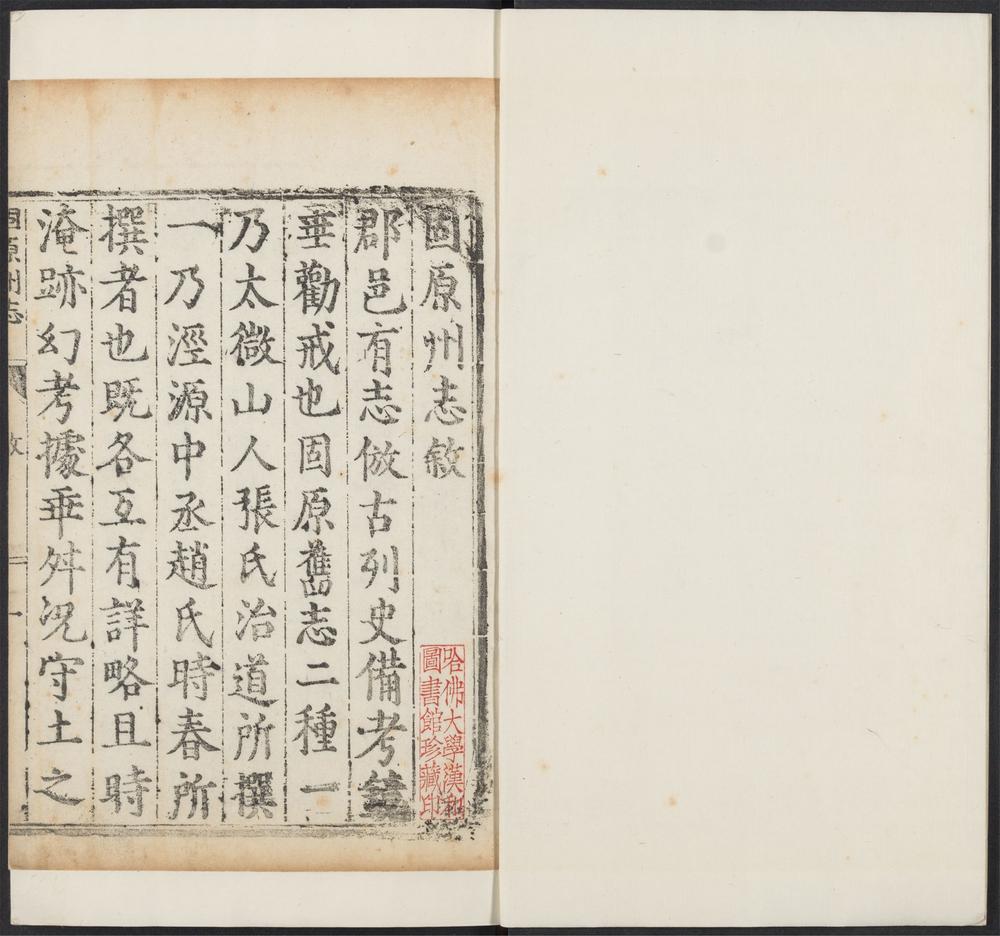 固原州志敘
郡邑有志倣古列史備考
垂勸戒也固原舊志二種一
乃太微山人張氏治道所撰
一乃涇源中丞趙氏時春所
撰者也既各互有詳略且時
淹跡幻考據乖舛況守土之
固原州志
敘
一
哈佛大學漢和
圖書館珍藏印